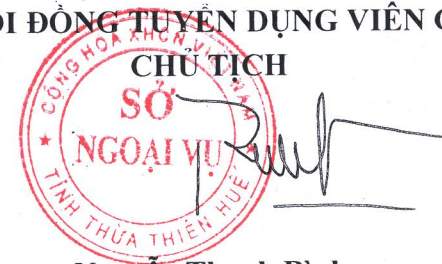 ĐỒNG TUYỂN DỤNG VIÊN
CHỦ TỊCH
CỘNG HOÀ XHCN VIỆT NAM
SỞ
NGOẠI VỤ
TỈNH THỪA THIÊN HUẾ